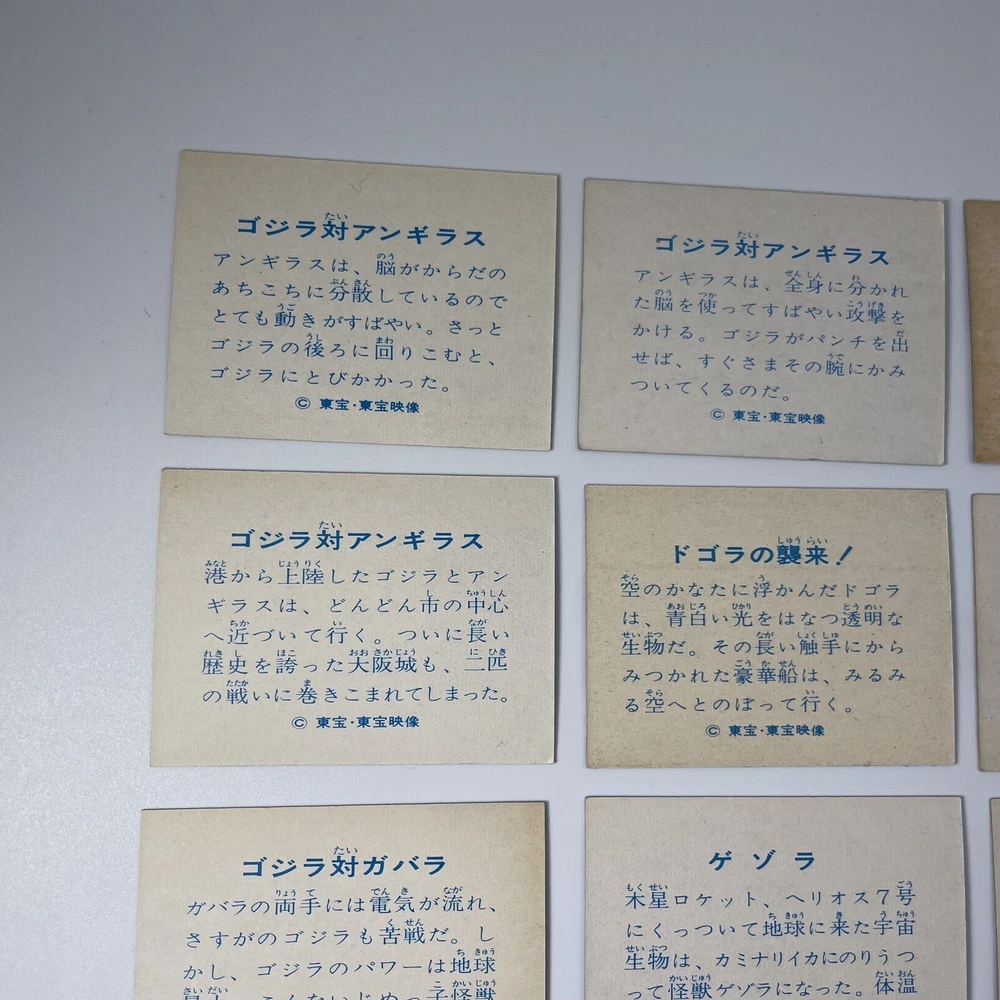 ゴジラ対アンギラス
アンギラスは、脳がからだの
あちこちに分散しているので
とても動きがすばやい。さっと
ゴジラの後ろに回りこむと、
ゴジラにとびかかった。
© 東宝・東宝映像
ゴジラ対アンギラス
アンギラスは、全身に分かれ
た脳を使ってすばやい攻撃を
かける。ゴジラがパンチを出
せば、すぐさまその腕にかみ
ついてくるのだ。
© 東宝・東宝映像
ゴジラ対アンギラス
港から上陸したゴジラとアン
ギラスは、どんどん市の中心
へ近づいて行く。ついに長い
歴史を誇った大阪城も、二匹
の戦いに巻きこまれてしまった。
© 東宝・東宝映像
ドゴラの襲来！
空のかなたに浮かんだドゴラ
は、青白い光をはなつ透明な
生物だ。その長い触手にから
みつかれた豪華船は、みるみ
る空へとのぼって行く。
© 東宝・東宝映像
ゴジラ対ガバラ
ガバラの両手には電気が流れ、
さすがのゴジラも苦戦だ。し
かし、ゴジラのパワーは地球
ゲゾラ
木星ロケット、ヘリオス7号
にくっついて地球に来た宇宙
生物は、カミナリイカにのりうつ
って怪獣ゲゾラになった。体温